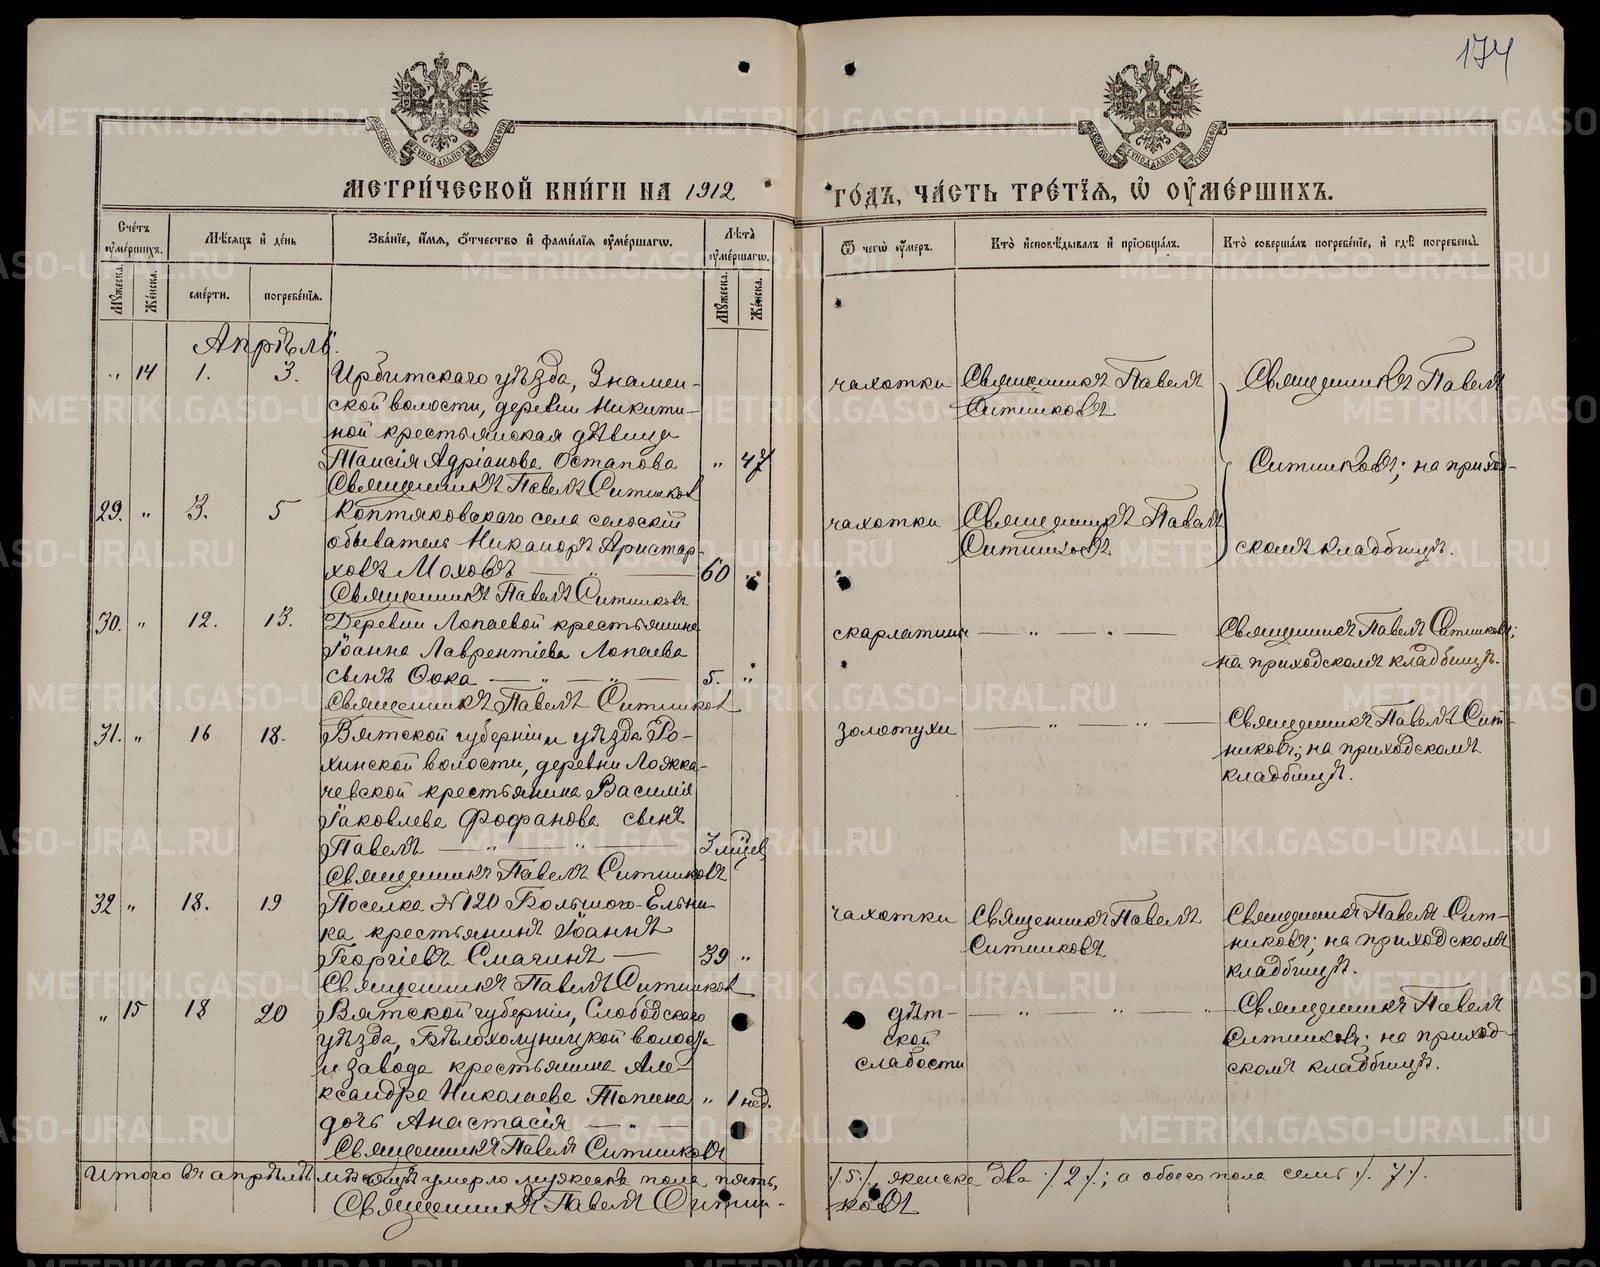 174
МЕТРИ́ЧЕСКОЙ КНИ́ГИ НА 1912 ГО́ДЪ, ЧА́СТЬ ТРЕ́ТІѦ, Ѡ ОУМЕ́РШИХЪ.
Сче́тъ оуме́ршихъ.
Мѣ́сѧцъ и де́нь
Зва́нїе, и́мѧ, ѻ́тчество и фами́лїѧ оуме́ршагѡ.
Лѣ́та оуме́ршагѡ.
Ѿ чегѡ̀ оу́меръ.
Кто̀ и҆сповѣ́дывалъ и прїѡбща́лъ.
Кто̀ соверша́лъ погребе́нїе, и гдѣ̀ погребены̀.
Мꙋ́жеска.
Же́нска.
сме́рти.
погребе́нїѧ.
Мꙋ́жеска.
Же́нска.
Апрѣль.
" 14 1. 3. Ирбитскаго уѣзда, Знамен-
ской волости, деревни Никити-
ной крестьянская дѣвица
Таисія Адріанова Остапова " 47
Священникъ Павелъ Ситников
чахотки
Священникъ Павелъ
Ситниковъ
Священникъ Павелъ
Ситниковъ; на приход-
скомъ кладбищѣ.
29. " 3. 5 Коптяковскаго села сельскій
обыватель Никаноръ Аристар-
ховъ Моховъ — " — 60 "
Священникъ Павелъ Ситниковъ
чахотки
Священникъ Павелъ
Ситниковъ
30. " 12. 13. Деревни Лопаевой крестьянина
Іоанна Лаврентіева Лопаева
сынъ Фока — " — " — 5. "
Священникъ Павелъ Ситников
скарлатины — " — " —
Священникъ Павелъ Ситниковъ;
на приходскомъ кладбищѣ.
31. " 16 18. Вятской губерніи и уѣзда
хинской волости, деревни
чевской крестьянина Василія
Іаковлева Фофанова сынъ
Павелъ — " — " — 3 мѣсев
Священникъ Павелъ Ситниковъ
золотухи — " — " —
Священникъ Павелъ Сит-
никовъ; на приходскомъ
кладбищѣ.
32 " 18. 19 Поселка № 120 Большого-Ельни-
ка крестьянинъ Іоаннъ
Георгіевъ Смагинъ — 39 "
Священникъ Павелъ Ситников
чахотки
Священникъ Павелъ
Ситниковъ
Священникъ Павелъ Сит-
никовъ; на приходскомъ
кладбищѣ.
" 15 18 20 Вятской губерніи, Слободского
уѣзда, Бѣлохолуницкой волости
и завода крестьянина Але-
ксандра Николаева Топина " 1 нед.
дочь Анастасія — " —
Священникъ Павелъ Ситниковъ
дѣт-
ской
слабости
— " — " — " —
Священникъ Павелъ
Ситниковъ; на приход-
скомъ кладбищѣ.
Итого въ апрѣлѣ мѣсяцѣ умерло мужеска пола пять, /.5./, женска два ./2./.; а обоего пола семь ./.7./.
Священникъ Павелъ Ситни-
ковъ